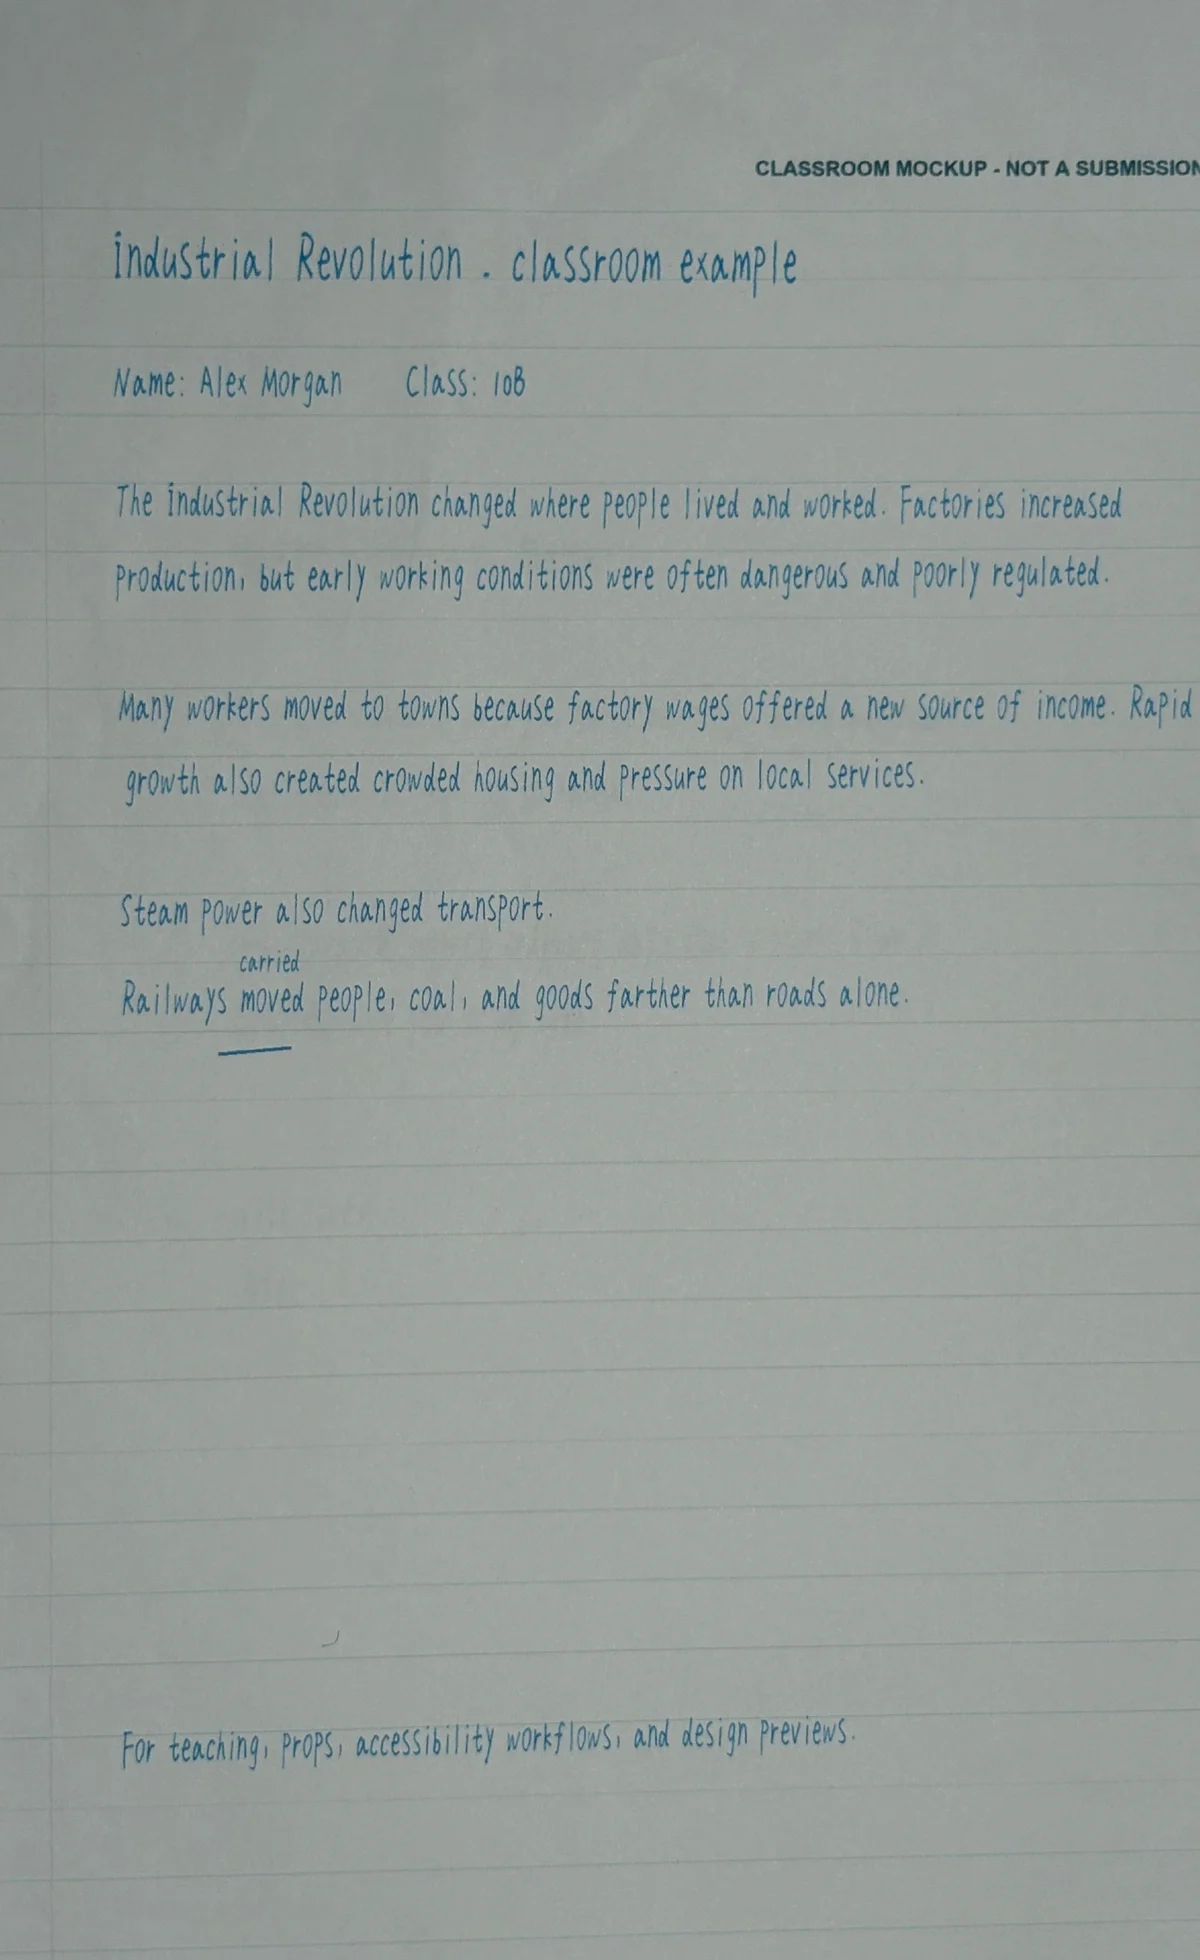 CLASSROOM MOCKUP - NOT A SUBMISSION
Industrial Revolution . classroom example
Name: Alex Morgan Class: 10B
The Industrial Revolution changed where people lived and worked. Factories increased
production, but early working conditions were often dangerous and poorly regulated.
Many workers moved to towns because factory wages offered a new source of income. Rapid
growth also created crowded housing and pressure on local services.
Steam power also changed transport.
carried
Railways moved people, coal, and goods farther than roads alone.
For teaching, props, accessibility workflows, and design previews.